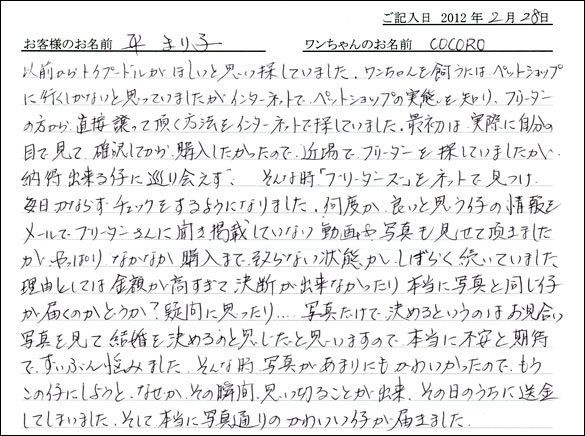 ご記入日 2012年2月28日
お客様のお名前 平 まり子 ワンちゃんのお名前 COCORO
以前からトイプードルがほしいと思い探していました。ワンちゃんを飼うにはペットショップ
に行くしかないと思っていましたがインターネットでペットショップの実態を知り、ブリーダー
の方から直接譲って頂く方法をインターネットで探していました。最初は実際に自分の
目で見て確認してから購入したかったので、近場でブリーダーを探していましたが
納得出来る仔に巡り会えず、 そんな時「ブリーダーズ」をネットで見つけ
毎日かならずチェックをするようになりました。何度か良いと思う仔の情報を
メールでブリーダーさんに聞き掲載していない動画や写真も見せて頂きました
が、やっぱりなかなか購入まで至らない状態がしばらく続いていました
理由としては金額が高すぎて決断が出来なかったり本当に写真と同じ仔
が届くのかどうか?疑問に思ったり....写真だけで決めるというのはお見合い
写真を見て結婚を決めるのと同じだと思いますので、本当に不安と期待
で、ずいぶん悩みました。そんな時写真があまりにもかわいかったので、もう
この仔にしようと、なぜか、その瞬間、思い切ることが出来、その日のうちに送金
してしまいました、そして本当に写真通りのかわいい仔が届きました。